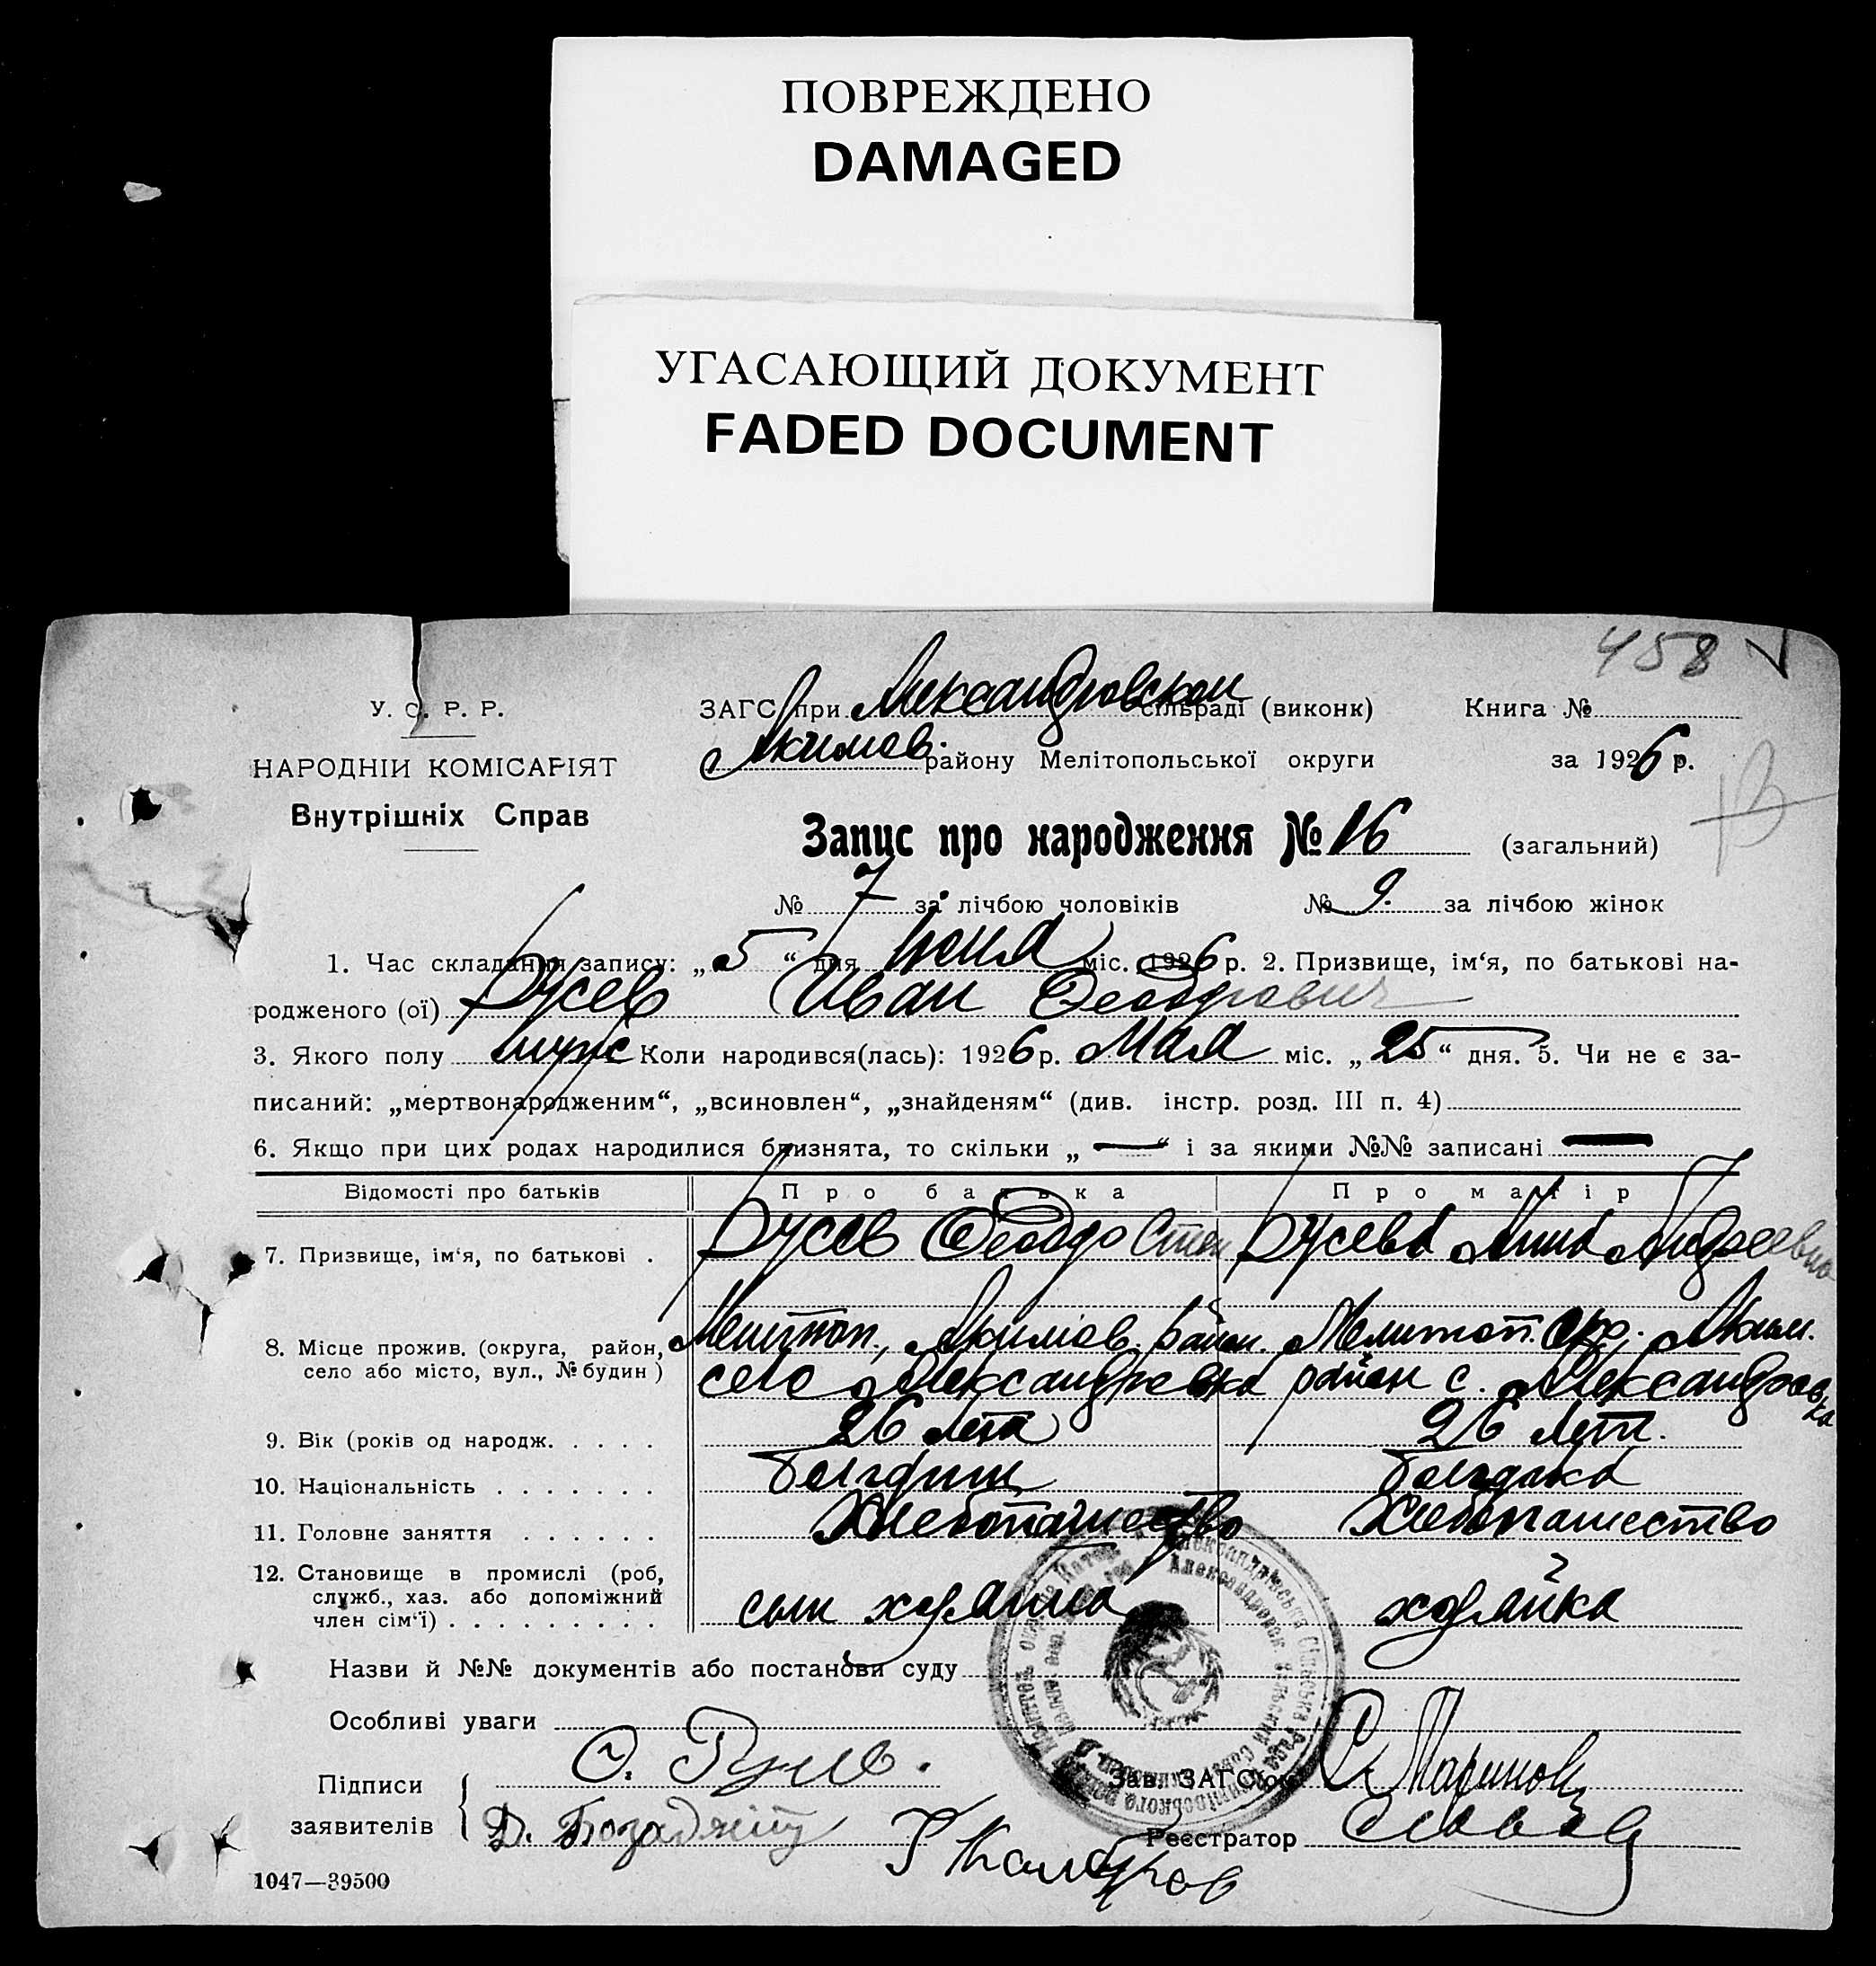 ПОВРЕЖДЕНО
DAMAGED
УГАСАЮЩИЙ ДОКУМЕНТ
FADED DOCUMENT
458
У. С. Р. Р.
НАРОДНІЙ КОМІСАРІЯТ
Внутрішніх Справ
ЗАГС при Александровской сільраді (виконк) Книга №
Акимов. району Мелітопольської округи за 1926 р.
Запис про народження № 16 (загальний)
№ 7 за лічбою чоловіків № 9. за лічбою жінок
1. Час складання запису: „5“ дня Июня міс. 1926 р. 2. Призвище, ім‘я, по батькові на-
родженого (ої) Русев Иван Феодрович
3. Якого полу муж Коли народився(лась): 1926 р. Мая міс. „25“ дня. 5. Чи не є за-
писаний: „мертвонародженим“, „всиновлен“, „знайденям“ (див. інстр. розд. III п. 4)
6. Якщо при цих родах народилися близнята, то скільки „—“ і за якими №№ записані —
Відомості про батьків Про батька Про матір
7. Призвище, ім‘я, по батькові . Русев Феодор Степ Русева Анна Андреевна
8. Місце прожив. (округа, район, село або місто, вул., № будин) Мелитоп., Акимов. район. Мелитоп. окр. Аким.
село Александровка район с. Александровка
9. Вік (років од народж. . . . . 26 лета 26 лет.
10. Національність . . . . . . . болгарин болгарка
11. Головне заняття . . . . . . Хлебопашество Хлебопашество
12. Становище в промислі (роб, служб., хаз. або допоміжний член сім‘ї) . . . . . . . . . сын хозяина хозяйка
Назви й №№ документів або постанови суду
Особливі уваги
Підписи заявителів
Зав. ЗАГС‘ом С. Маринов
Реєстратор
1047—39500